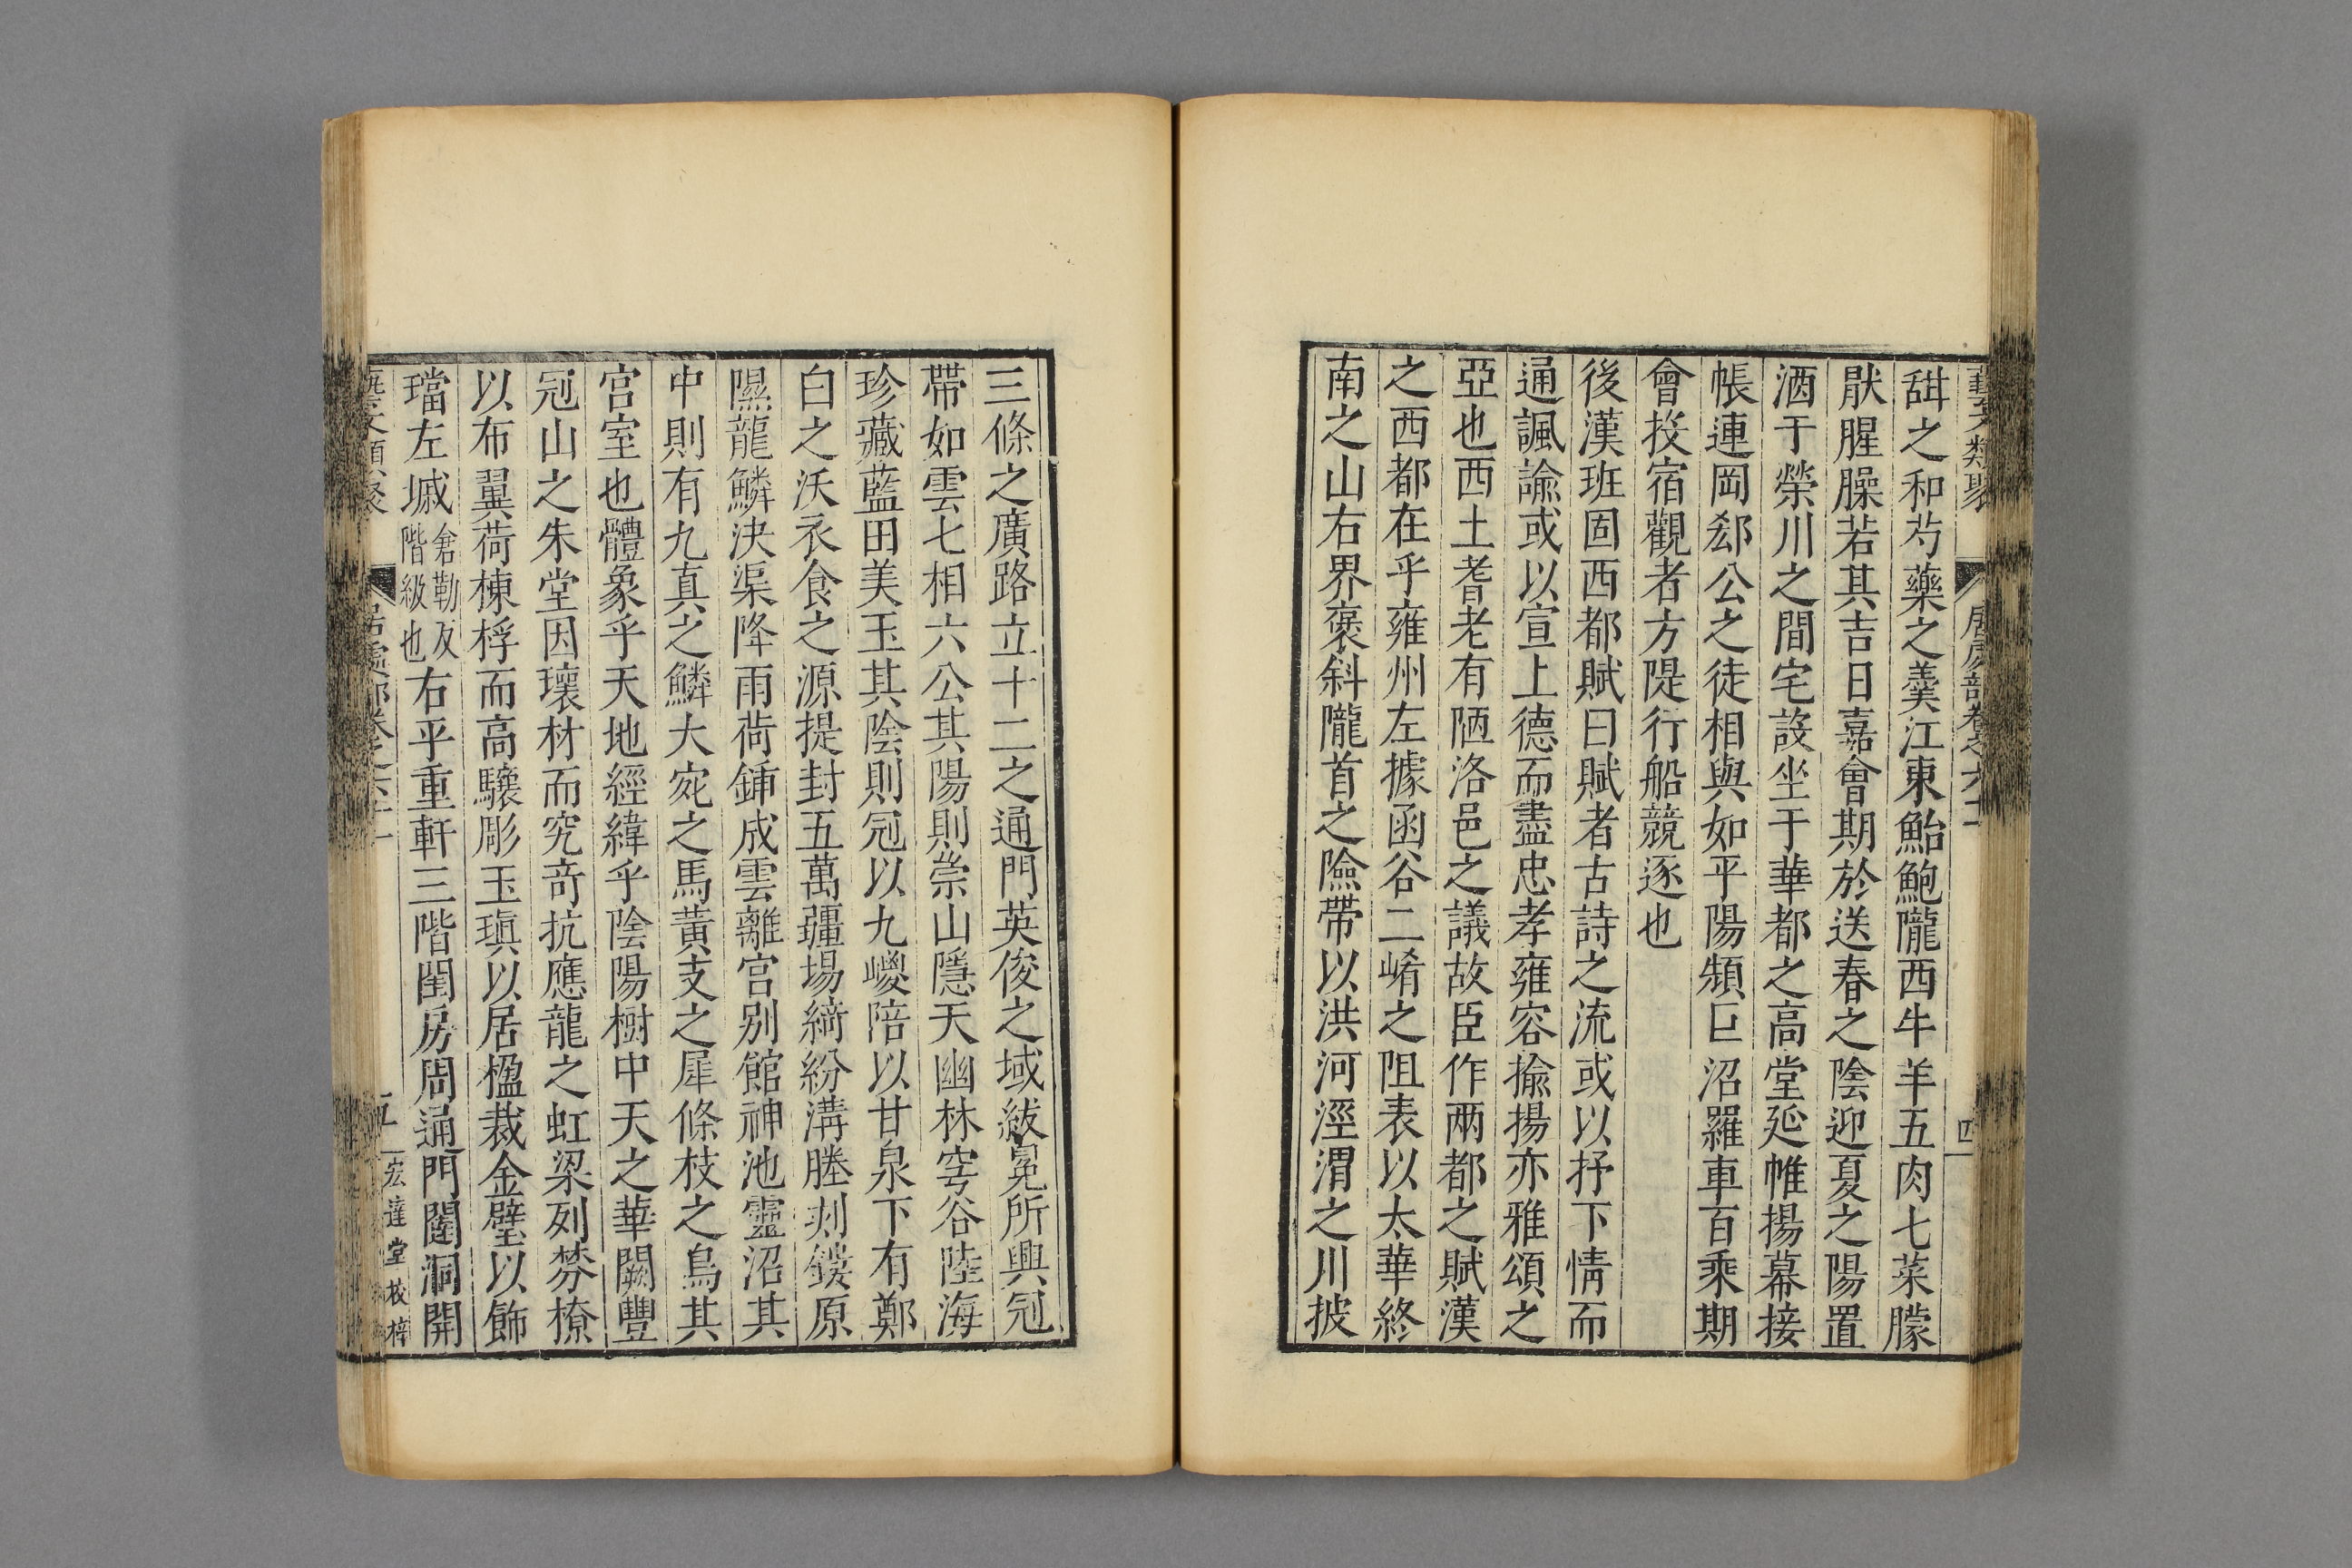 甜之和芍藥之羹江東鮐鮑隴西牛羊五肉七菜朦
猒腥臊若其吉日嘉會期於送春之陰迎夏之陽置
酒于滎川之閒宅設坐于華都之高堂延帷揚幕接
帳連岡郄公之徒相與如平陽頮巨沼羅車百乘期
會投宿觀者方隄行船競逐也
後漢班固西都賦曰賦者古詩之流或以抒下情而
通諷諭或以宣上德而盡忠孝雍容揄揚亦雅頌之
亞也西土耆老有陋洛邑之議故臣作兩都之賦漢
之西都在乎雍州左據函谷二崤之阻表以太華終
南之山右界褒斜隴首之險帶以洪河涇渭之川披
三條之廣路立十二之通門英俊之域紱冕所興冠
帶如雲七相六公其陽則崇山隱天幽林穹谷陸海
珍藏藍田美玉其陰則冠以九嵕陪以甘泉下有鄭
白之沃衣食之源提封五萬疆場綺紛溝塍刻鏤原
隰龍鱗決渠降雨荷鍤成雲離宫别館神池靈沼其
中則有九真之鱗大宛之馬黃支之犀條枝之鳥其
宫室也體象乎天地經緯乎陰陽樹中天之華闕豐
冠山之朱堂因瓌材而究竒抗應龍之虹梁列棼橑
以布翼荷棟桴而高驤彫玉瑱以居楹裁金璧以飾
璫左墄倉勒反階級也右平重軒三階閨房周通門闥洞開
藝文類聚 居處部卷之六十一 五 宏達堂校梓